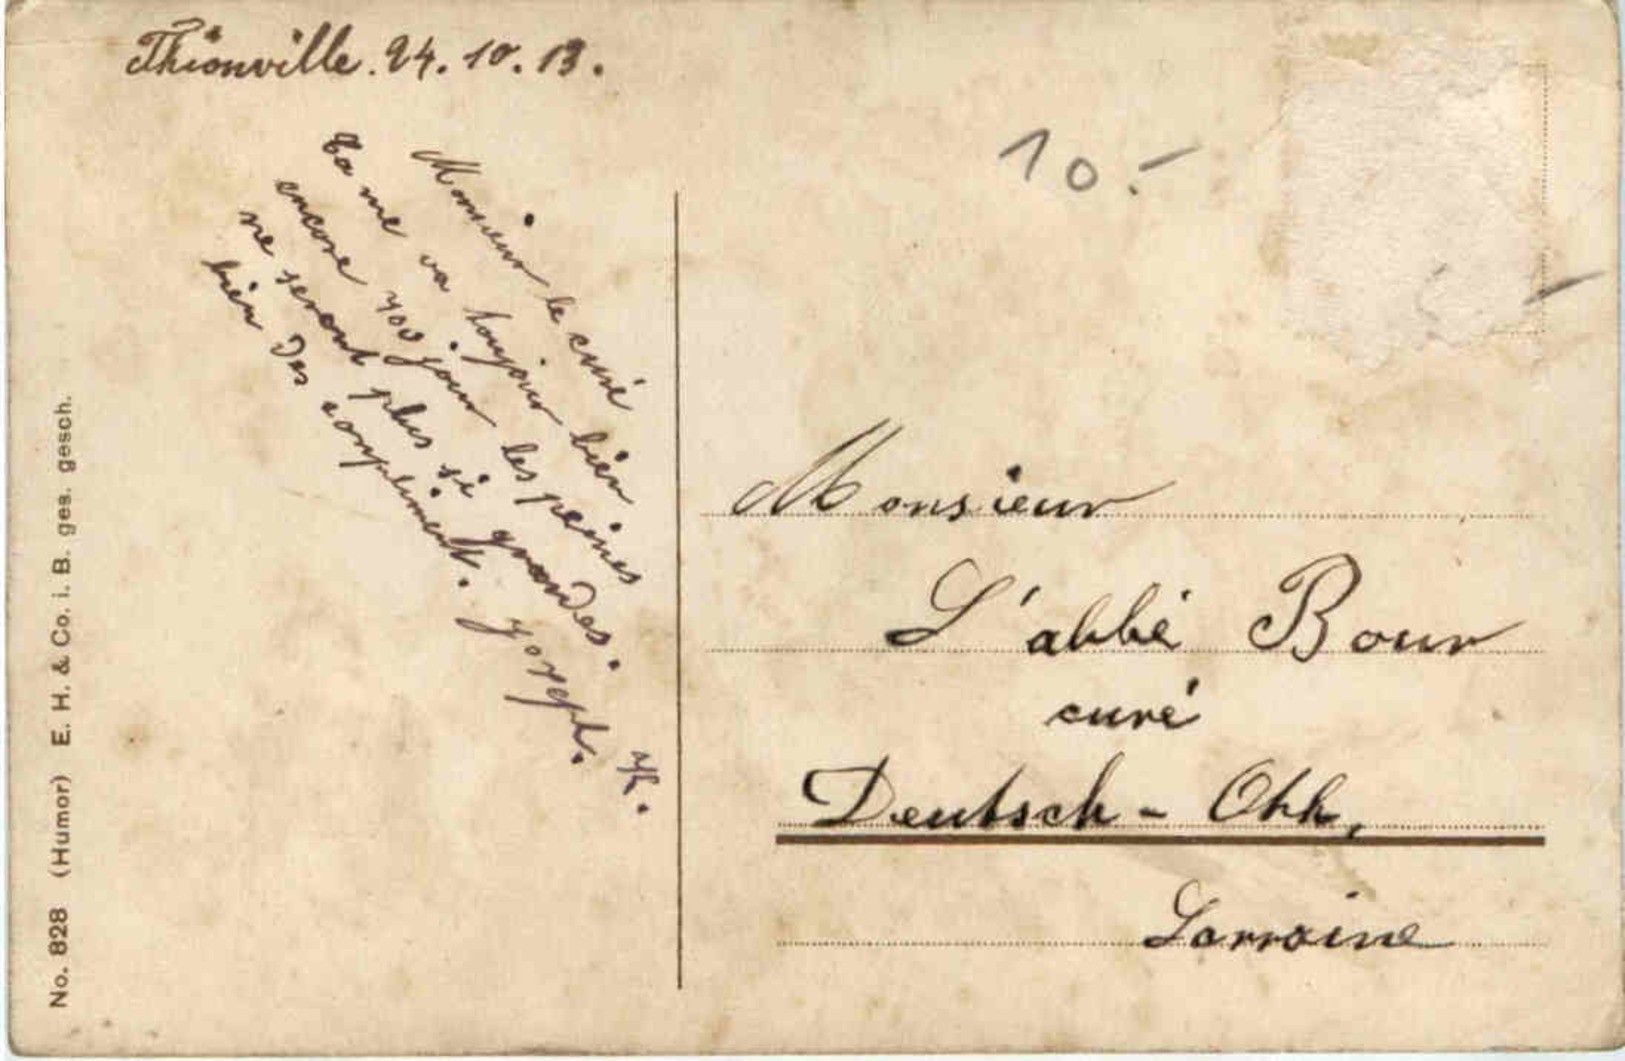 Thionville. 24. 10. 13.
Monsieur le curé
Ça me va toujour bien
encore 700 jour les peines
ne seront plus si grandes.
bien des compliment. Joseph.
10.-
Monsieur
L'abbé Bour
curé
Deutsch-Oth,
Lorraine
No. 828 (Humor) E. H. & Co. i. B. ges. gesch.